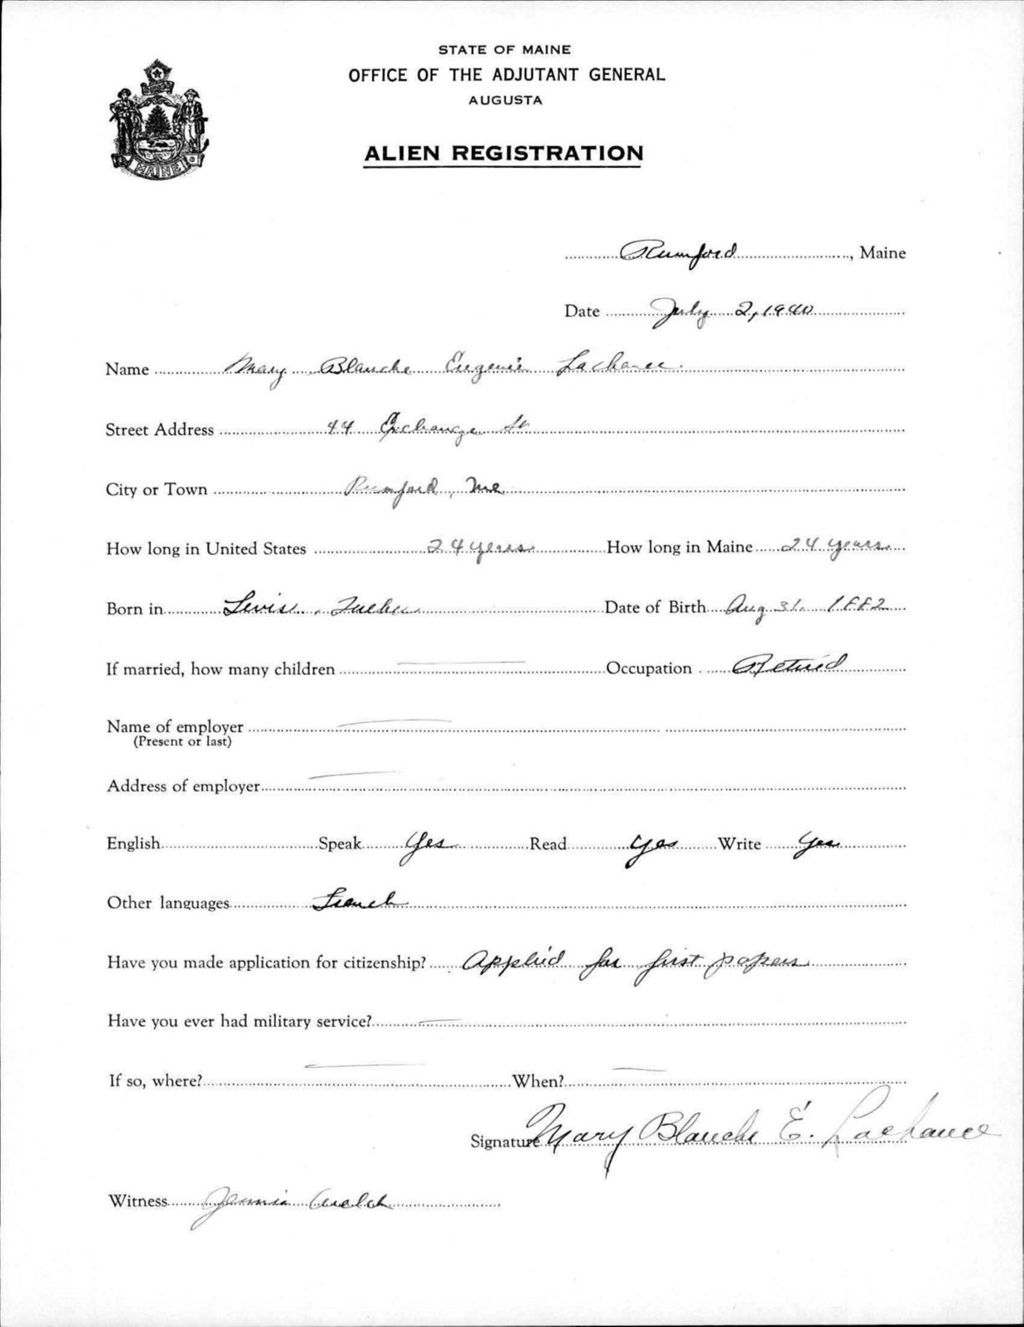 STATE OF MAINE
OFFICE OF THE ADJUTANT GENERAL
AUGUSTA
ALIEN REGISTRATION
MAINE
Rumford, Maine
Date July 2, 1940
Name Mary Blanche Eugenie Lachance
Street Address 44 Exchange St
City or Town Rumford, Me
How long in United States 24 years How long in Maine 24 years
Born in Levis, Quebec Date of Birth Aug 31. 1882
If married, how many children — Occupation Retired
Name of employer —
(Present or last)
Address of employer —
English Speak Yes Read Yes Write Yes
Other languages French
Have you made application for citizenship? Applied for first papers
Have you ever had military service? —
If so, where? — When? —
Signature Mary Blanche E. Lachance
Witness Jennie Welch